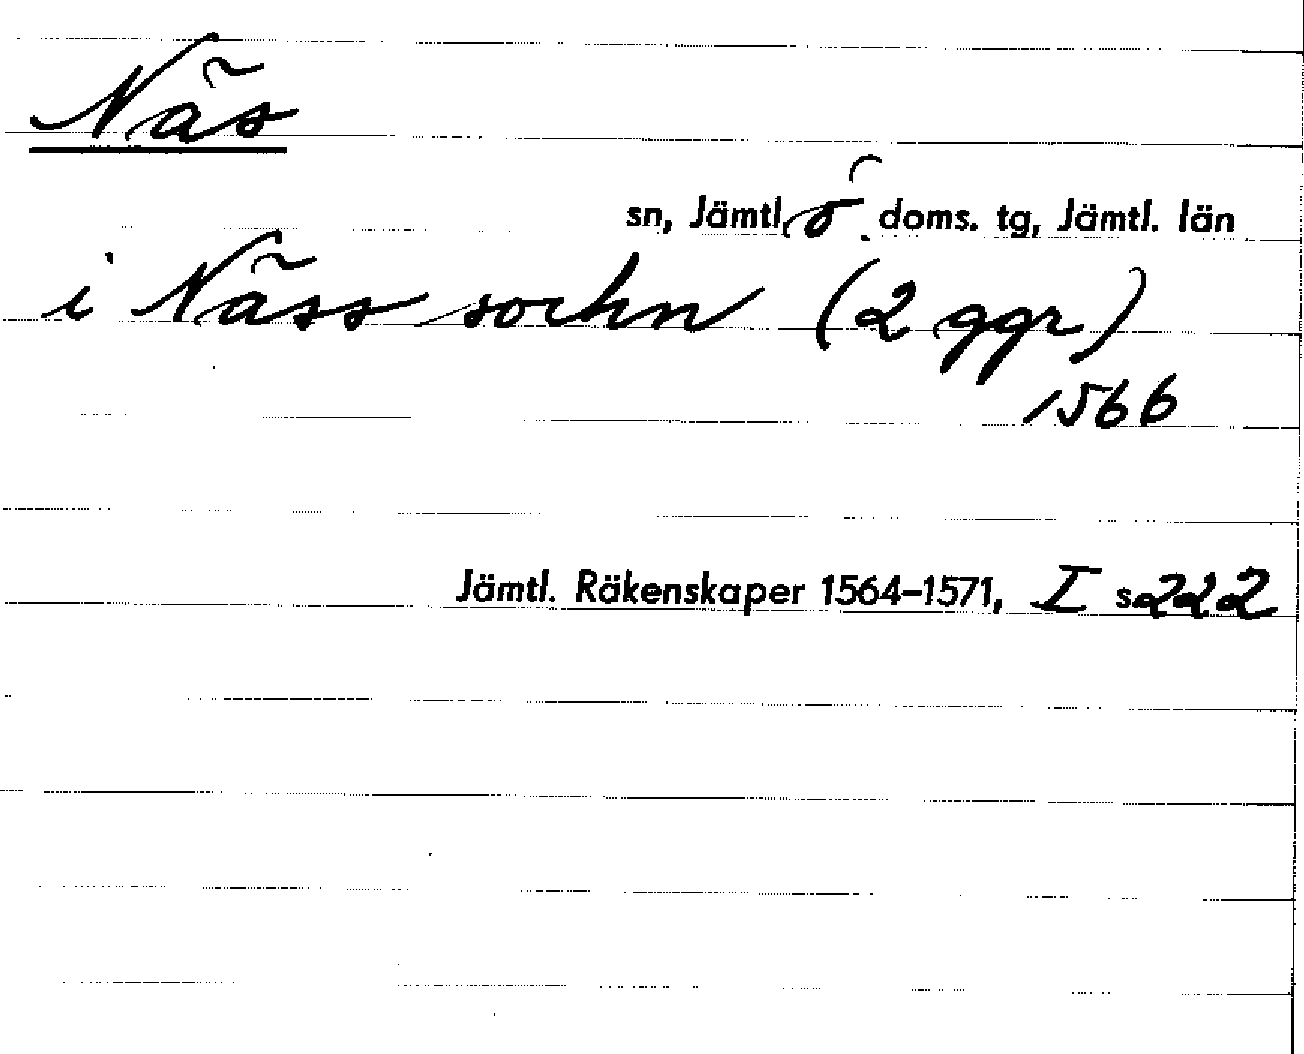 Näs
sn, Jämtl. ö. doms. tg, Jämtl. län
i Näss sochn (2 ggr)
1566
Jämtl. Räkenskaper 1564–1571, I s. 222